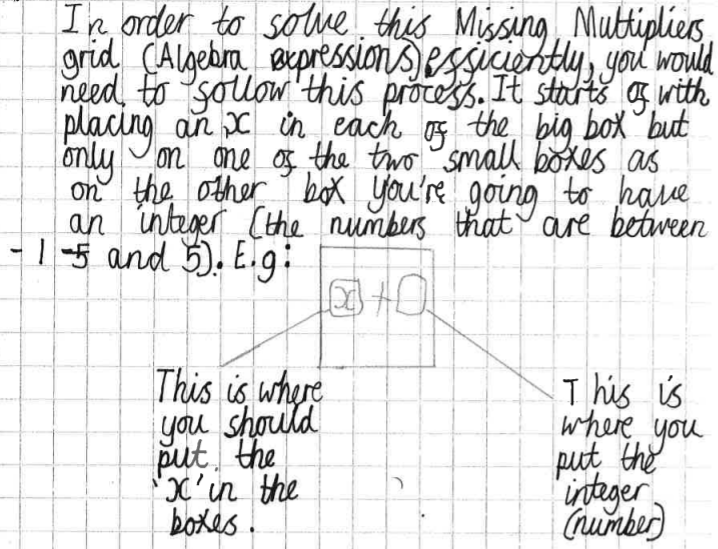 In order to solve this Missing Multipliers
grid (Algebra expressions) efficiently, you would
need to follow this process. It starts of with
placing an x in each of the big box but
only on one of the two small boxes as
on the other box you're going to have
an integer (the numbers that are between
-1 -5 and 5). E.g:
x +
This is where
you should
put the
'x' in the
boxes.
This is
where you
put the
integer
(number)